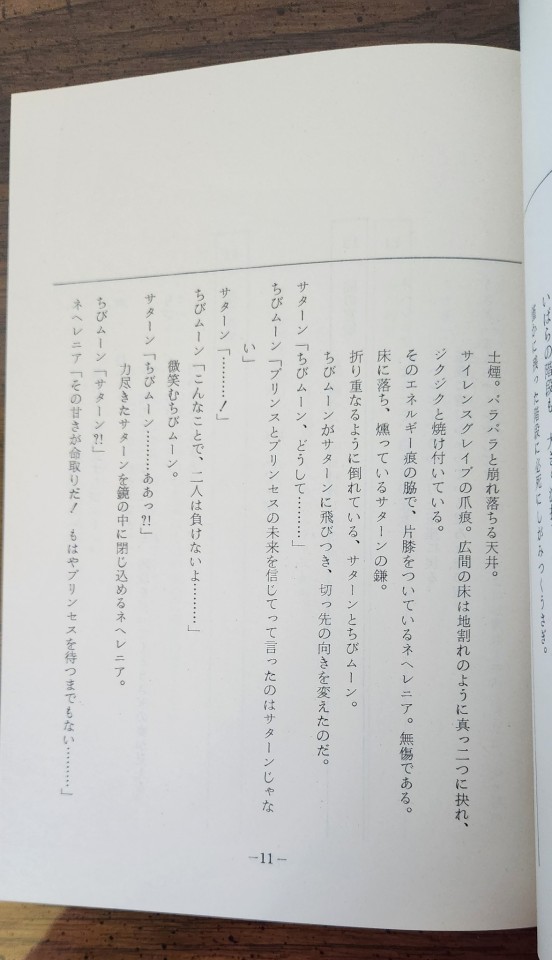 土煙。バラバラと崩れ落ちる天井。
サイレンスグレイブの爪痕。広間の床は地割れのように真っ二つに抉れ、
ジクジクと焼け付いている。
そのエネルギー痕の脇で、片膝をついているネヘレニア。無傷である。
床に落ち、燻っているサターンの鎌。
折り重なるように倒れている、サターンとちびムーン。
ちびムーンがサターンに飛びつき、切っ先の向きを変えたのだ。
サターン「ちびムーン、どうして………」
ちびムーン「プリンスとプリンセスの未来を信じてって言ったのはサターンじゃな
い」
サターン「………!」
ちびムーン「こんなことで、二人は負けないよ………」
微笑むちびムーン。
サターン「ちびムーン………ああっ?!」
力尽きたサターンを鏡の中に閉じ込めるネヘレニア。
ちびムーン「サターン?!」
ネヘレニア「その甘さが命取りだ! もはやプリンセスを待つまでもない………」
—11—